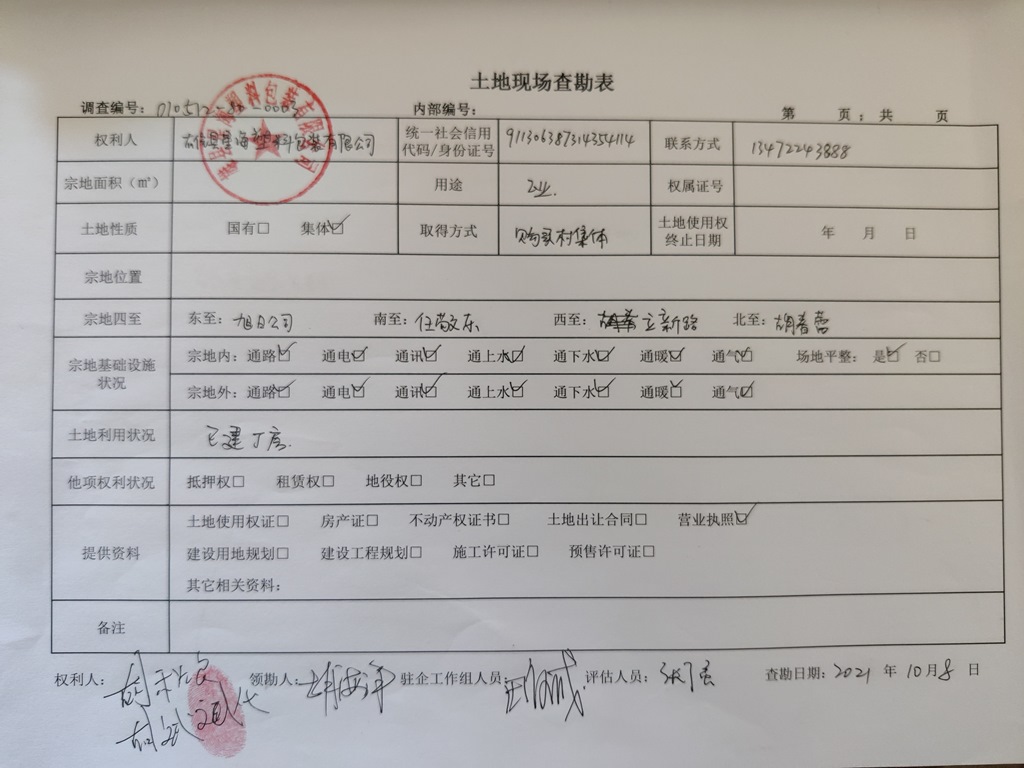 土地现场查勘表
调查编号： 内部编号： 第 页；共 页
权利人 塑料包装有限公司 统一社会信用代码/身份证号 911306387314354114 联系方式 13472243888
宗地面积（㎡） 用途 工业. 权属证号
土地性质 国有□ 集体☑ 取得方式 购买村集体 土地使用权终止日期 年 月 日
宗地位置
宗地四至 东至：旭日公司 南至：任敬东 西至：立新路 北至：胡春营
宗地基础设施状况 宗地内：通路☑ 通电☑ 通讯☑ 通上水☑ 通下水☑ 通暖☑ 通气☑ 场地平整：是☑ 否□
宗地外：通路☑ 通电☑ 通讯☑ 通上水☑ 通下水☑ 通暖☑ 通气☑
土地利用状况 已建厂房.
他项权利状况 抵押权□ 租赁权□ 地役权□ 其它□
提供资料 土地使用权证□ 房产证□ 不动产权证书□ 土地出让合同□ 营业执照☑
建设用地规划□ 建设工程规划□ 施工许可证□ 预售许可证□
其它相关资料：
备注
权利人： 领勘人： 驻企工作组人员： 评估人员： 查勘日期：2021 年 10月8 日